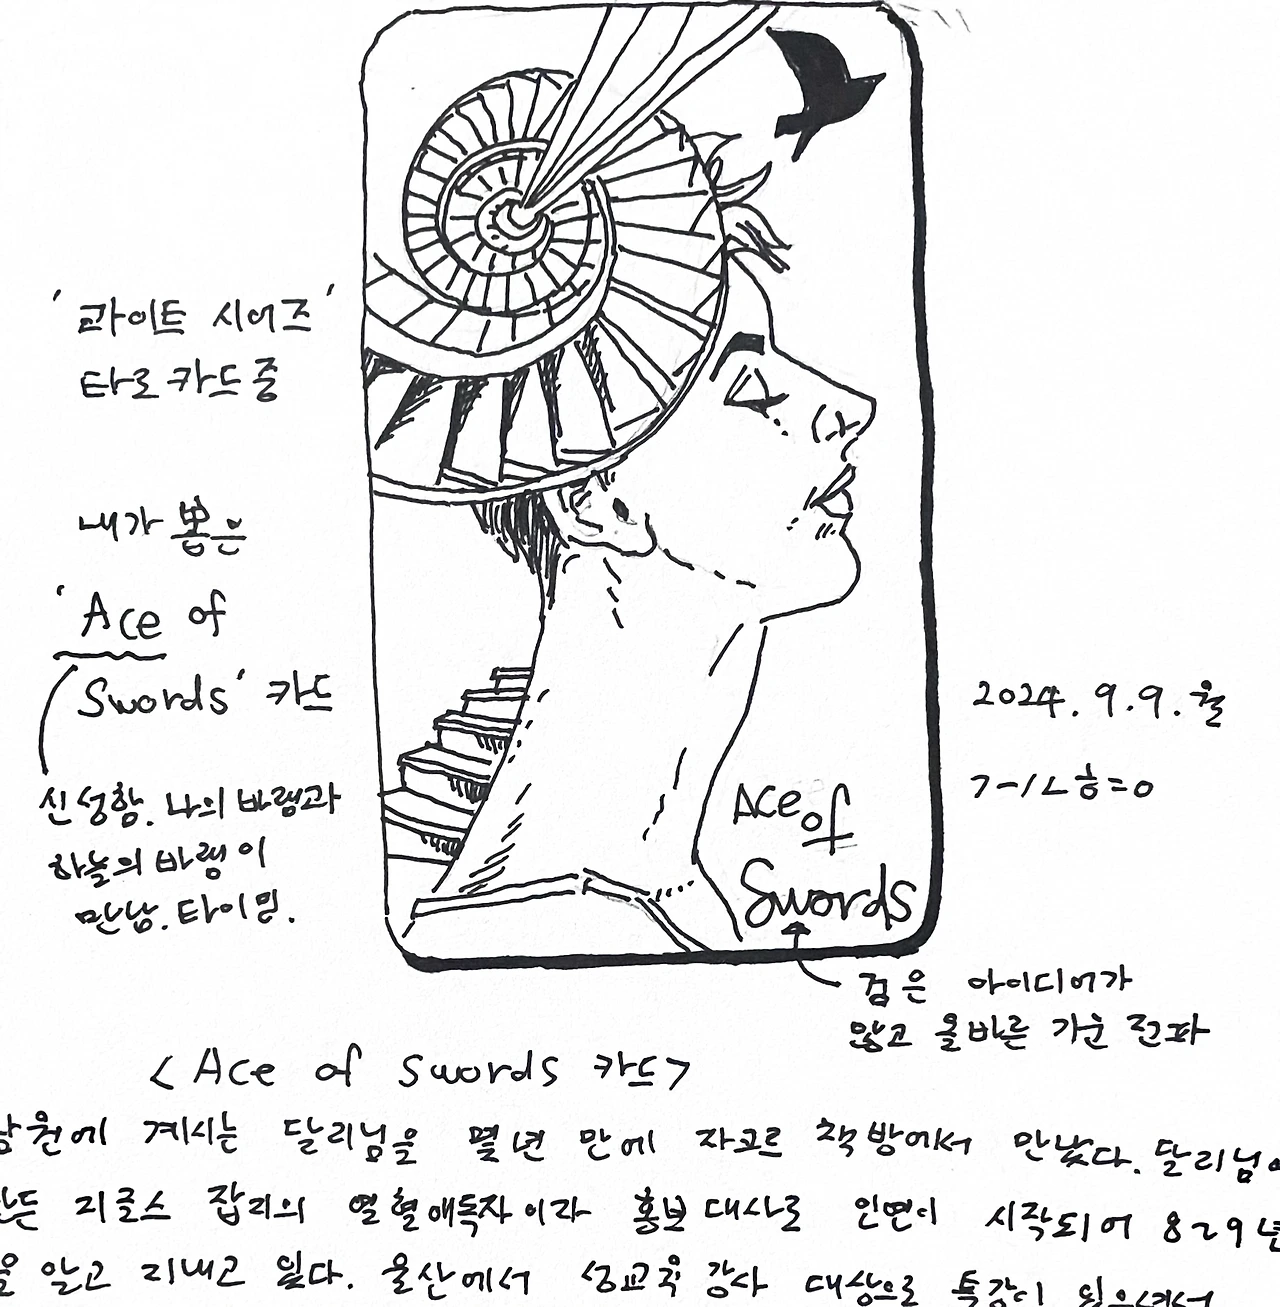 '라이트 시어즈'
타로 카드 중
내가 뽑은
'Ace of
Swords' 카드
신성함. 나의 바램과
하늘의 바램이
만남. 타이밍.
Ace of
Swords
2024. 9. 9. 월
검은 아이디어가
않고 올바른 가운 전파
<Ace of Swords 카드>
남원에 계시는 달리님을 몇 년 만에 자크르 책방에서 만났다. 달리님이
만든 피클스 잡지의 열혈애독자이자 홍보대사로 인연이 시작되어 829년
을 알고 지내고 있다. 울산에서 성교육 강사 대상으로 특강이 있으셔서